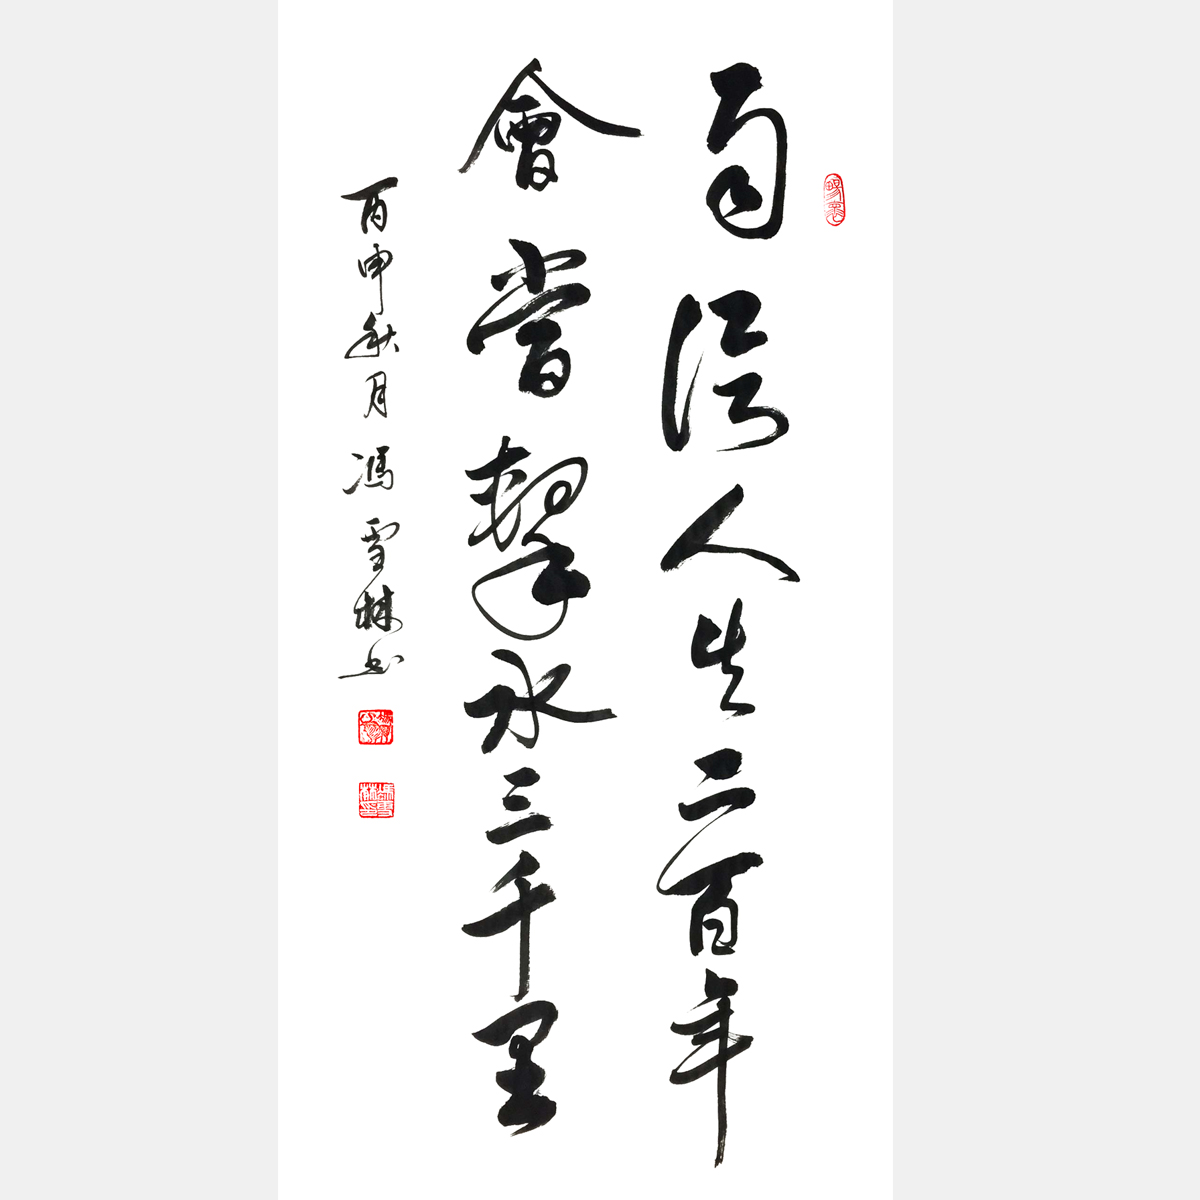 自信人生二百年
會當擊水三千里
丙申秋月馮雪林书